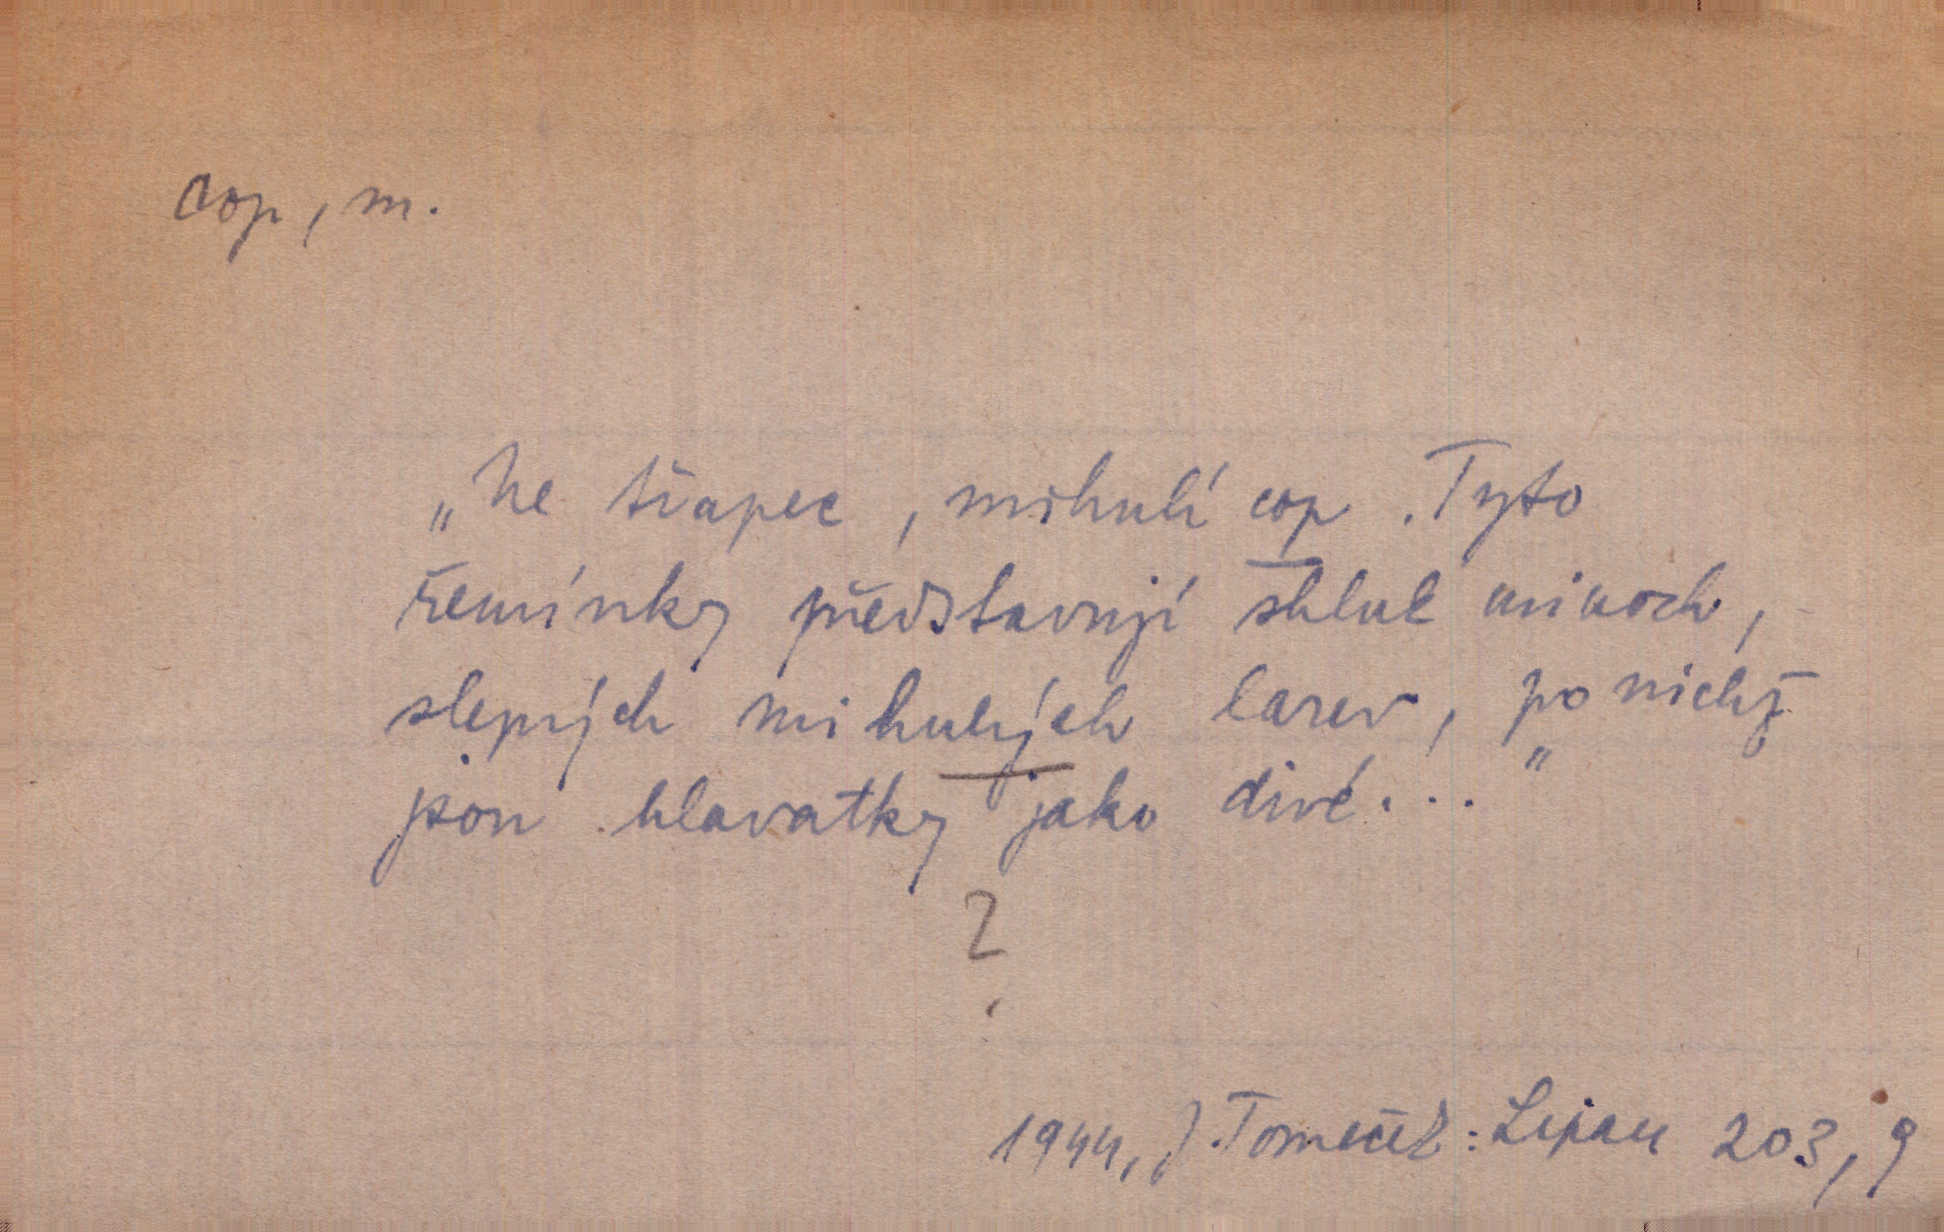 cop, m.
„Ne třapec, mihulí cop. Tyto
řemínky představují shluk minoch,
slepých mihulých larev, po nichž
jsou hlavatky jako divé..."
?
1944, J. Tomeček: Lipan 203, 9